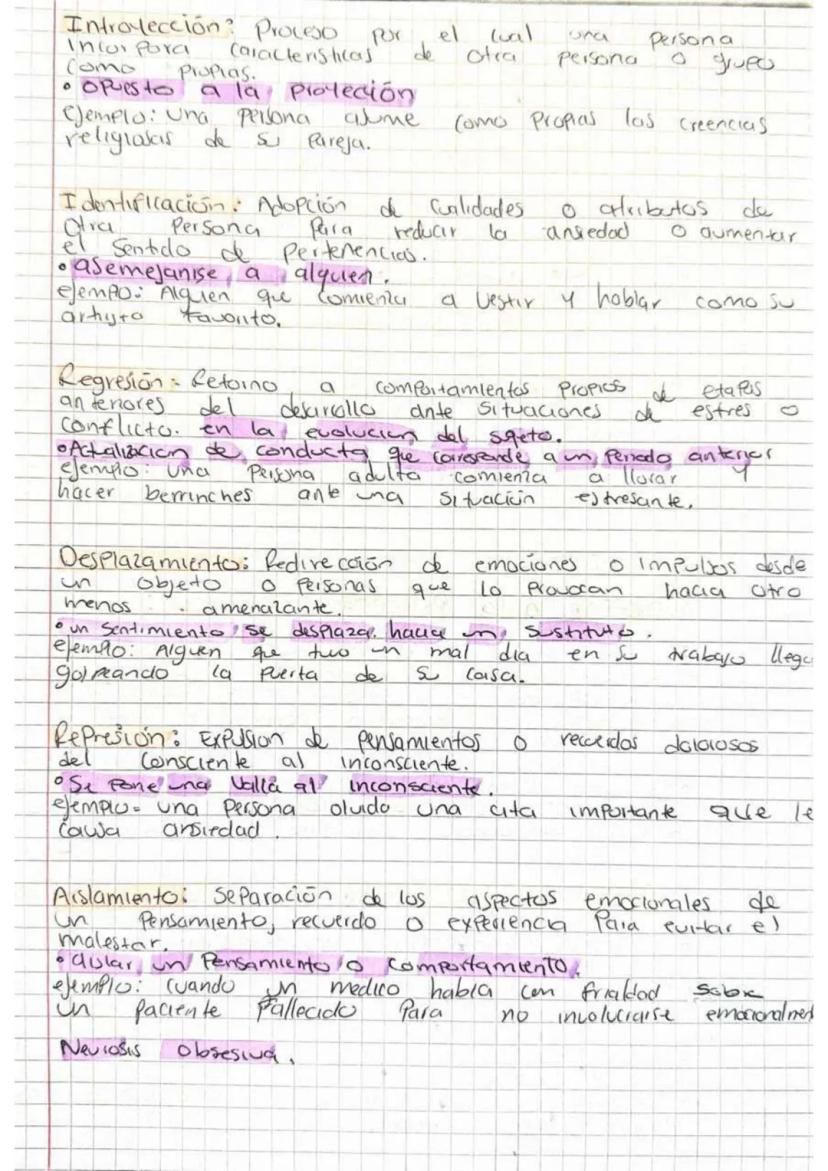 Introyección: Proceso por el cual una persona
incorpora características de otra persona o grupo
como propias.
• opuesto a la proyección
Ejemplo: Una persona asume como propias las creencias
religiosas de su pareja.
Identificación: Adopción de cualidades o atributos de
otra persona para reducir la ansiedad o aumentar
el sentido de pertenencias.
• asemejarse a alguien.
ejempo: Alguien que comienza a vestir y hablar como su
artista favorito.
Regresión: Retorno a comportamientos propios de etapas
anteriores del desarrollo ante situaciones de estres o
conflicto. en la evolucion del sujeto.
• Actualizacion de conducta que corresponde a un periodo anterior
ejemplo: una persona adulta comienza a llorar y
hacer berrinches ante una situación estresante.
Desplazamiento: Redirección de emociones o impulsos desde
un objeto o personas que lo provocan hacia otro
menos amenazante.
• un sentimiento se desplaza hacia un sustituto.
ejemplo: Alguien que tuvo un mal dia en su trabajo llega
golpeando la puerta de su casa.
Represión: Expulsion de pensamientos o recuerdos dolorosos
del consciente al inconsciente.
• Se pone una valla al inconsciente.
ejemplo= una persona olvido una cita importante que le
causa ansiedad.
Aislamiento: Separación de los aspectos emocionales de
un pensamiento, recuerdo o experiencia para evitar el
malestar.
• aislar un pensamiento o comportamiento.
ejemplo: cuando un medico habla con frialdad sobre
un paciente fallecido para no involucrarse emocionalment
Neurosis obsesiva.